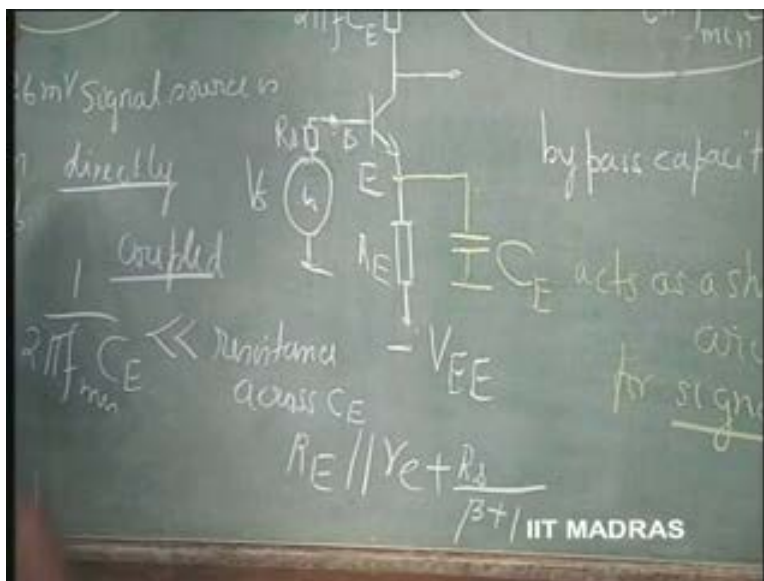 2πfCE
min
26mV Signal source is
directly
coupled
Rs
B
Vs
E
RE
CE
-VEE
bypass capacit
CE acts as a sh
for signa
1
2πfmin CE << resistance
across CE
RE//re+Rs
β+1
IIT MADRAS